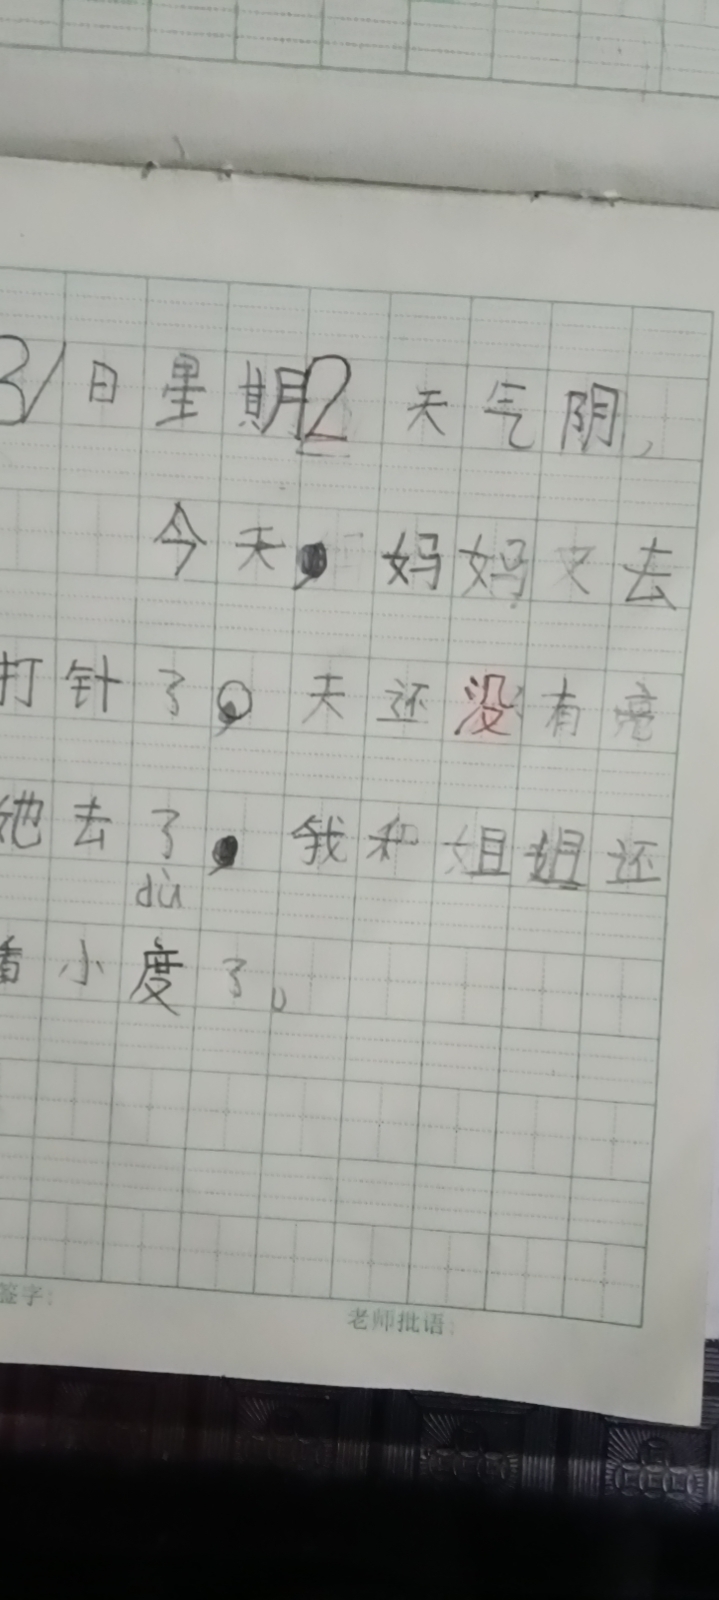 31日星期2 天气阴,
今天,妈妈又去
打针了。天还没有亮
她去了,我和姐姐还
dù
看小度了。
签字:
老师批语: